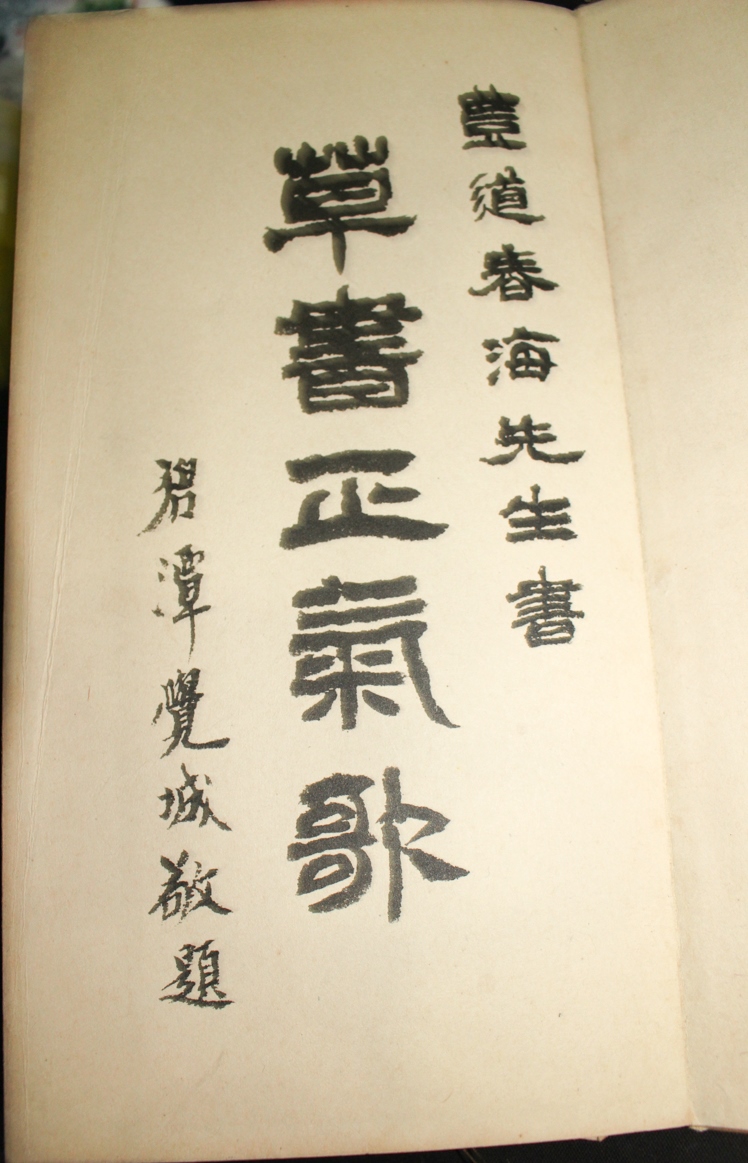 豊道春海先生書
草書正氣歌
碧潭覺城敬題